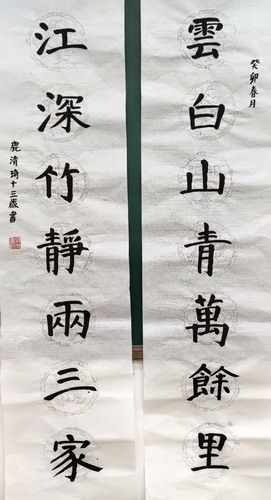 癸卯春月
雲白山青萬餘里
江深竹靜兩三家
鹿清琦十三歲書